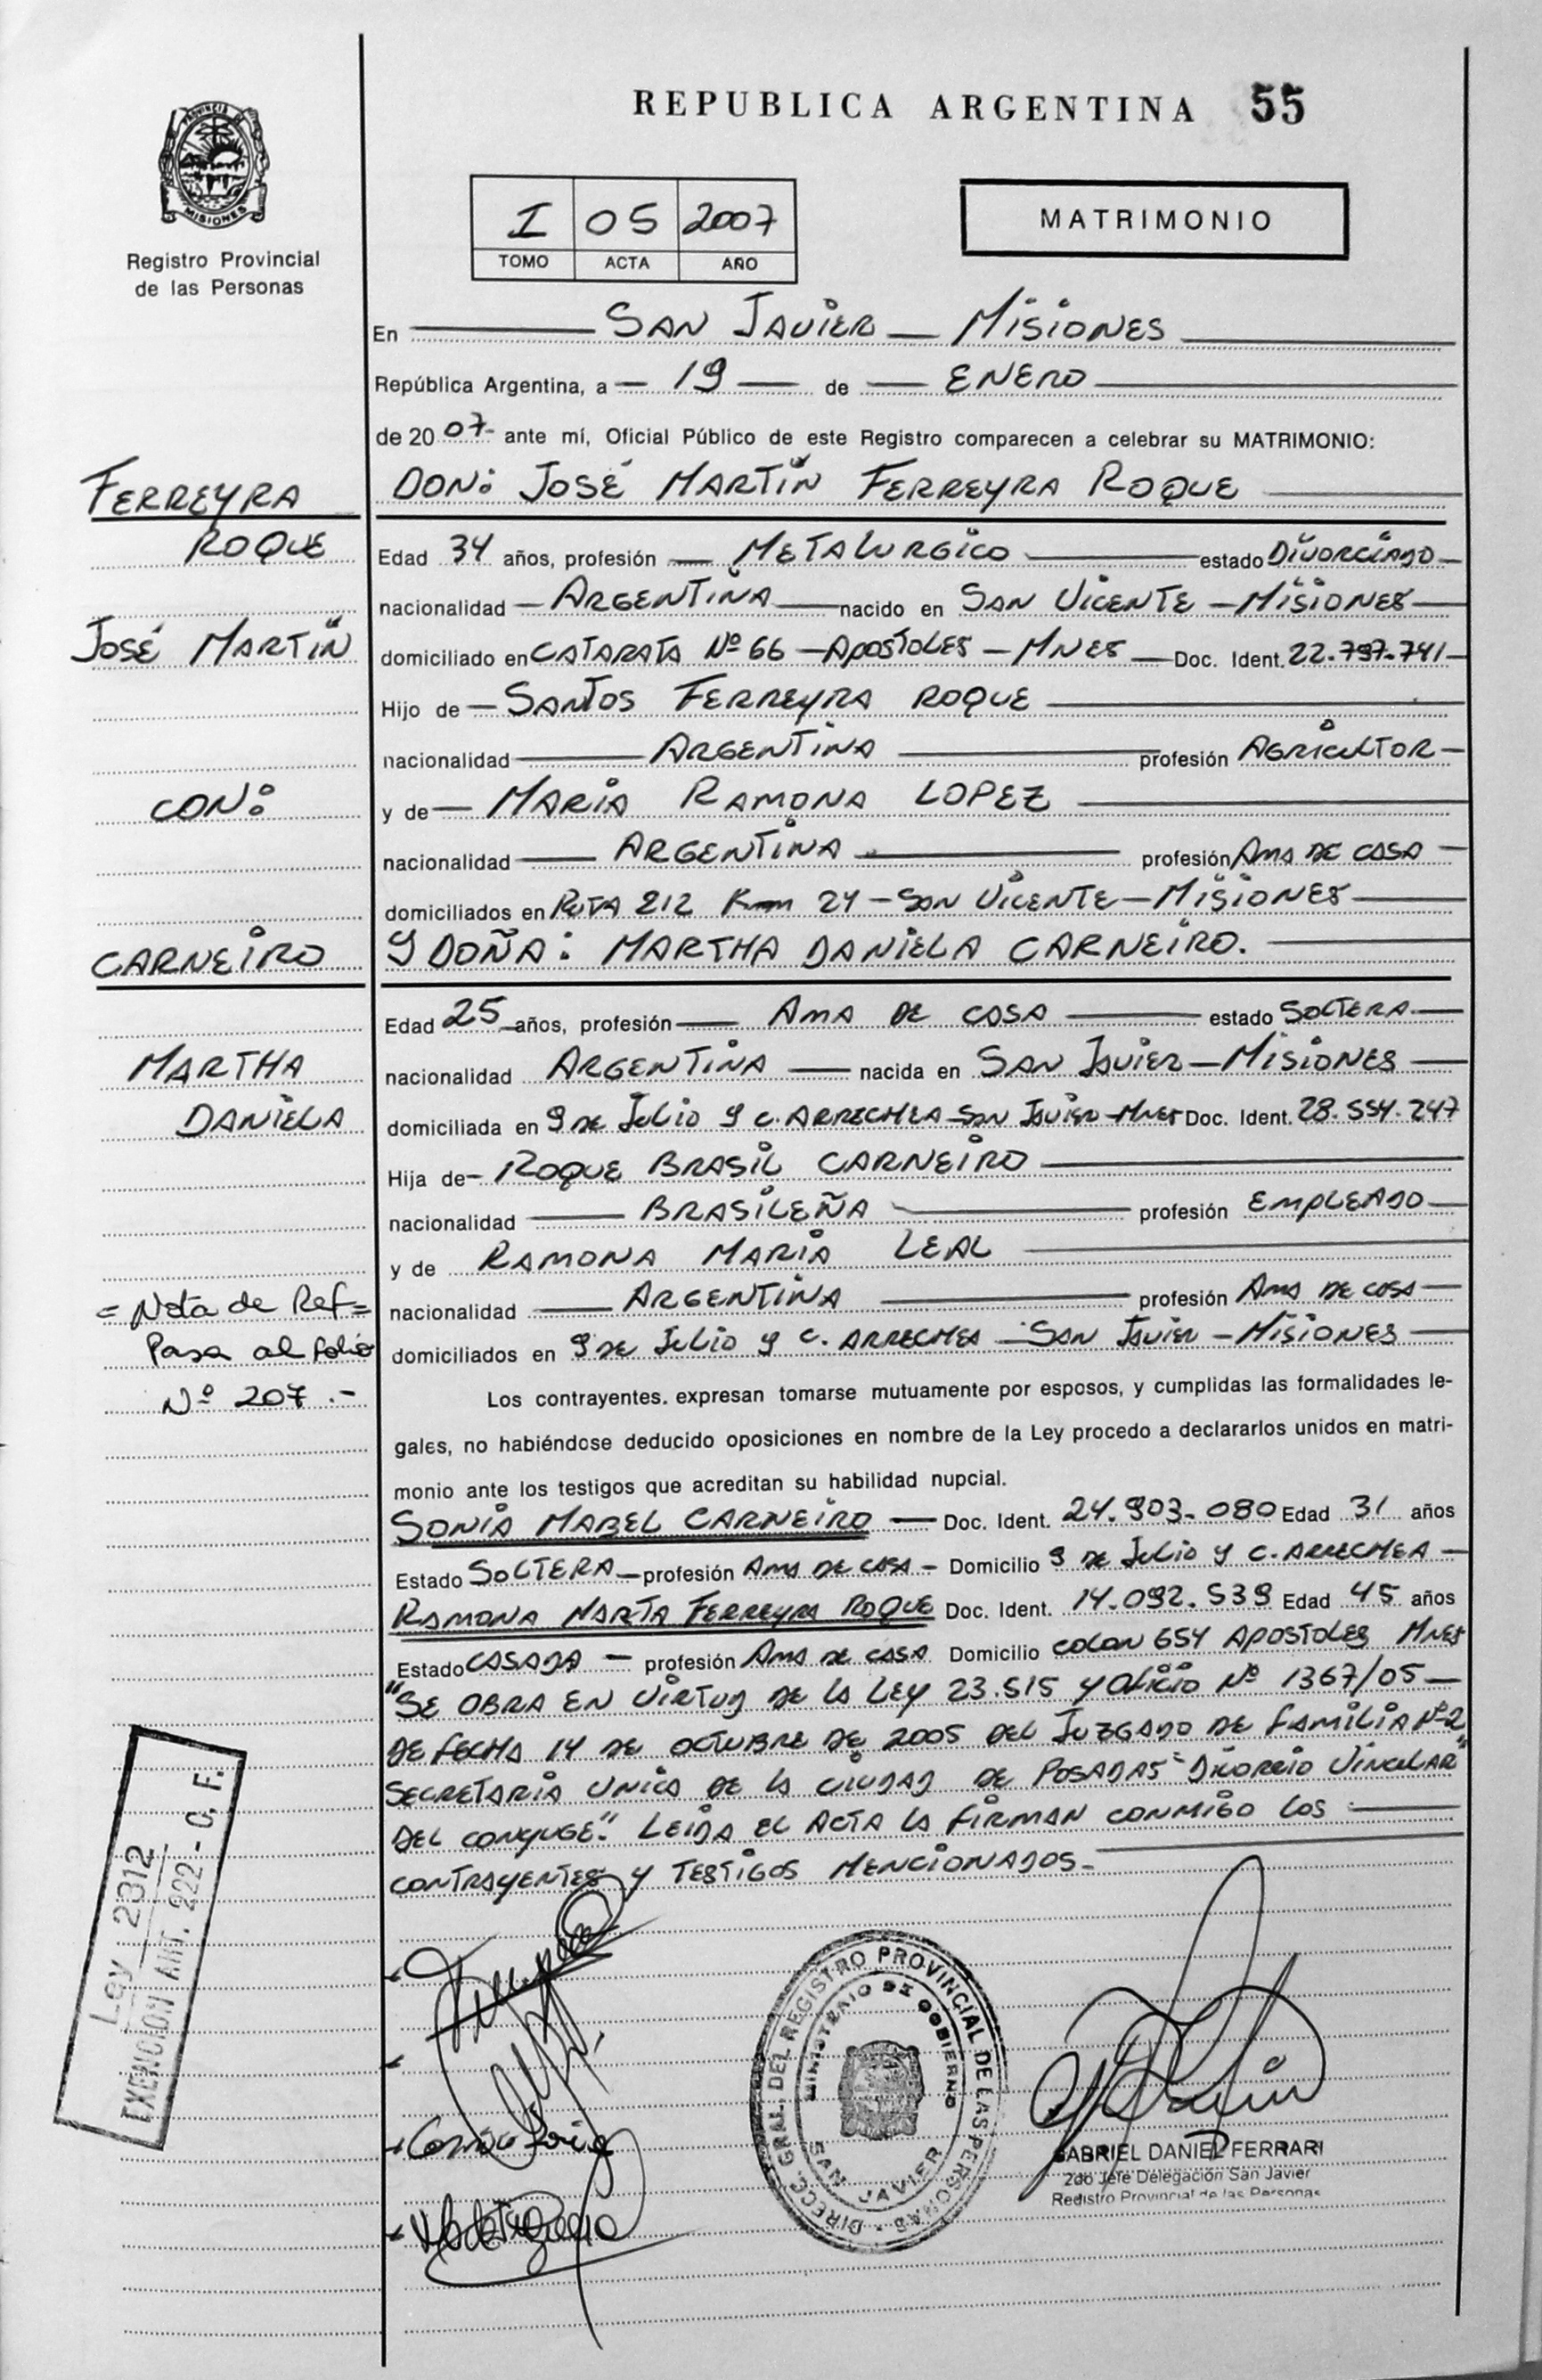 REPUBLICA ARGENTINA 55
PROVINCIA DE
MISIONES
Registro Provincial
de las Personas
I 05 2007
TOMO ACTA AÑO
MATRIMONIO
En SAN JAVIER — MISIONES
República Argentina, a — 19 — de — ENERO
de 2007- ante mí, Oficial Público de este Registro comparecen a celebrar su MATRIMONIO:
FERREYRA
ROQUE
JOSÉ MARTÍN
CON:
CARNEIRO
MARTHA
DANIELA
= Nota de Ref =
Pasa al folio
Nº 207.-
DON: JOSÉ MARTÍN FERREYRA ROQUE
Edad 34 años, profesión — METALURGICO — estado DIVORCIADO —
nacionalidad — ARGENTINA — nacido en SAN VICENTE — MISIONES —
domiciliado en CATARATA Nº 66 — APOSTOLES — MNES — Doc. Ident. 22.797.741 —
Hijo de — SANTOS FERREYRA ROQUE
nacionalidad — ARGENTINA — profesión AGRICULTOR —
y de — MARIA RAMONA LOPEZ
nacionalidad — ARGENTINA — profesión AMA DE CASA —
domiciliados en RUTA 212 Km 24 — SAN VICENTE — MISIONES —
Y DOÑA: MARTHA DANIELA CARNEIRO.
Edad 25 años, profesión — AMA DE CASA — estado SOLTERA —
nacionalidad ARGENTINA — nacida en SAN JAVIER — MISIONES —
domiciliada en 9 DE JULIO Y C. ARRECHEA — SAN JAVIER — MNES Doc. Ident. 28.554.247
Hija de — ROQUE BRASIL CARNEIRO
nacionalidad — BRASILEÑA — profesión EMPLEADO —
y de RAMONA MARIA LEAL
nacionalidad — ARGENTINA — profesión AMA DE CASA —
domiciliados en 9 DE JULIO Y C. ARRECHEA — SAN JAVIER — MISIONES —
Los contrayentes. expresan tomarse mutuamente por esposos, y cumplidas las formalidades le-
gales, no habiéndose deducido oposiciones en nombre de la Ley procedo a declararlos unidos en matri-
monio ante los testigos que acreditan su habilidad nupcial.
SONIA MABEL CARNEIRO — Doc. Ident. 24.903.080 Edad 31 años
Estado SOLTERA — profesión AMA DE CASA — Domicilio 9 DE JULIO Y C. ARRECHEA —
RAMONA MARTA FERREYRA ROQUE Doc. Ident. 14.092.539 Edad 45 años
Estado CASADA — profesión AMA DE CASA Domicilio COLON 654 APOSTOLES MNES
"SE OBRA EN VIRTUD DE LA LEY 23.515 Y OFICIO Nº 1367/05 —
DE FECHA 14 DE OCTUBRE DE 2005 DEL JUZGADO DE FAMILIA Nº 2
SECRETARIA UNICA DE LA CIUDAD DE POSADAS "DIVORCIO VINCULAR"
DEL CONYUGE". LEIDA EL ACTA LA FIRMAN CONMIGO LOS
CONTRAYENTES Y TESTIGOS MENCIONADOS.-
Ley 2312
EXENCION ART. 222 - C. F.
DIRECC. GRAL. DEL REGISTRO PROVINCIAL DE LAS PERSONAS
MINISTERIO DE GOBIERNO
SAN JAVIER
GABRIEL DANIEL FERRARI
2do Jefe Delegación San Javier
Registro Provincial de las Personas